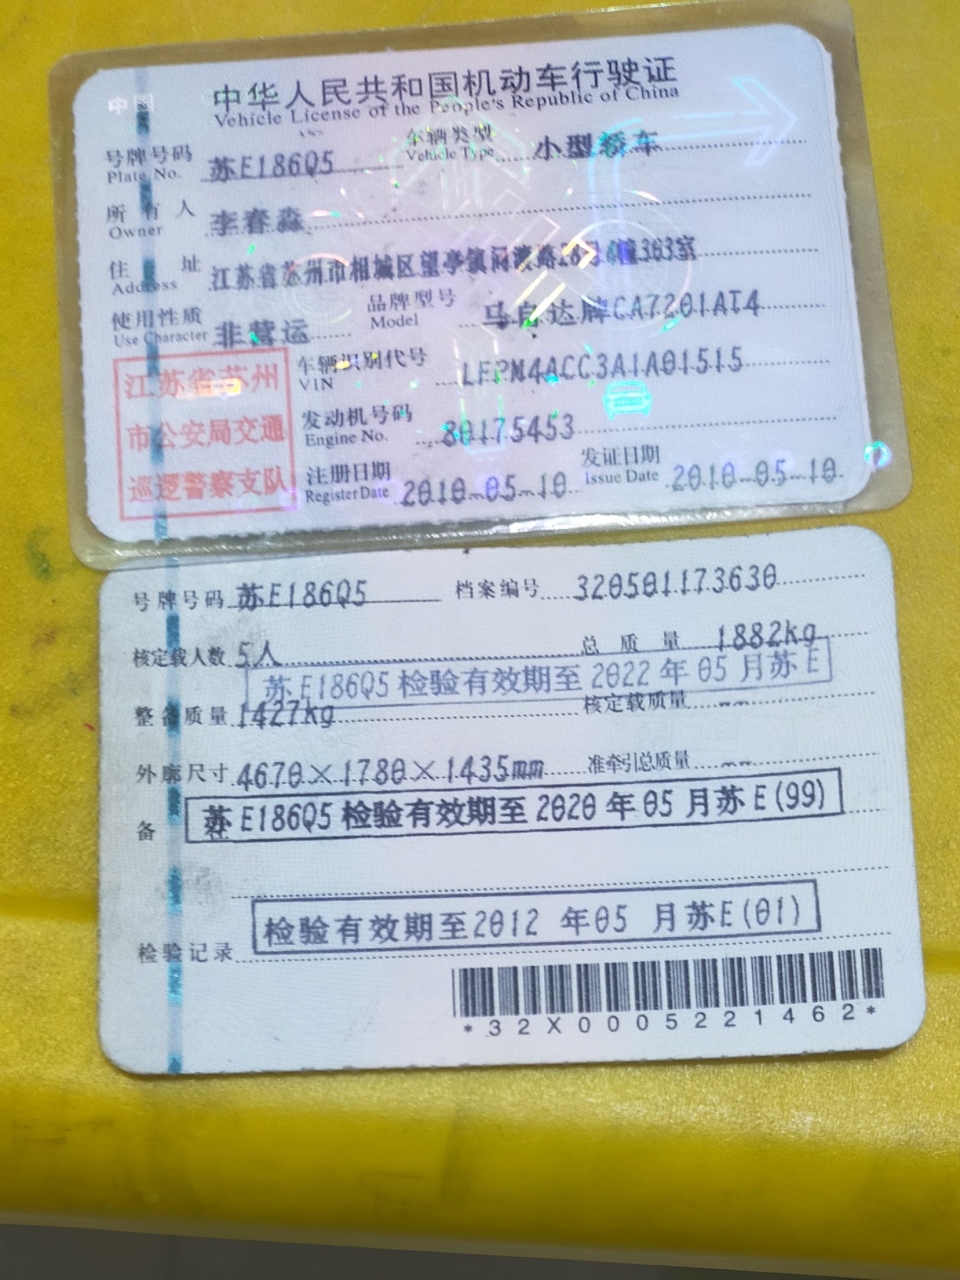 中国
中华人民共和国机动车行驶证
Vehicle License of the People's Republic of China
号牌号码 苏E186Q5 车辆类型 小型轿车
Plate No. Vehicle Type
所有人 李春淼
Owner
住址 江苏省苏州市相城区望亭镇问渡路 幢363室
Address
使用性质 非营运 品牌型号 马自达牌CA7201AT4
Use Character Model
江苏省苏州
市公安局交通
巡逻警察支队
车辆识别代号 LFPM4ACC3A1A01515
VIN
发动机号码 80175453
Engine No.
注册日期 2010-05-10 发证日期 2010-05-10
Register Date Issue Date
号牌号码 苏E186Q5 档案编号 320501173630
核定载人数 5人 总质量 1882kg
苏E186Q5检验有效期至2022年05月苏E
整备质量 1427kg 核定载质量 --
外廓尺寸 4670×1780×1435mm 准牵引总质量 --
苏E186Q5检验有效期至2020年05月苏E(99)
备
检验有效期至2012年05月苏E(01)
检验记录
*32X0005221462*